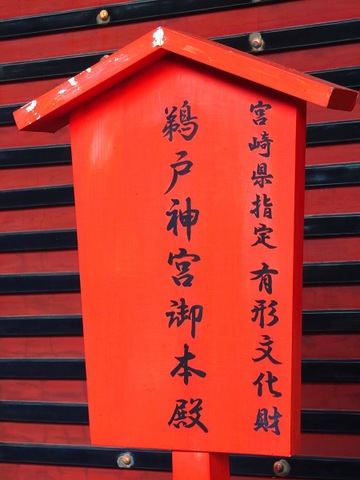 宮崎県指定 有形文化財
鵜戸神宮御本殿